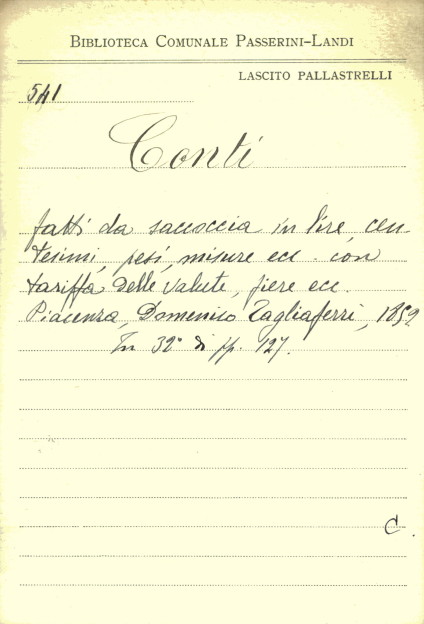 BIBLIOTECA COMUNALE PASSERINI-LANDI
LASCITO PALLASTRELLI
541
Conti
fatti da saccoccia in lire, cen-
tesimi, pesi, misure ecc. con
tariffa delle valute, fiere ecc.
Piacenza, Domenico Tagliaferri, 1859.
In 32° di pp. 127.
C.